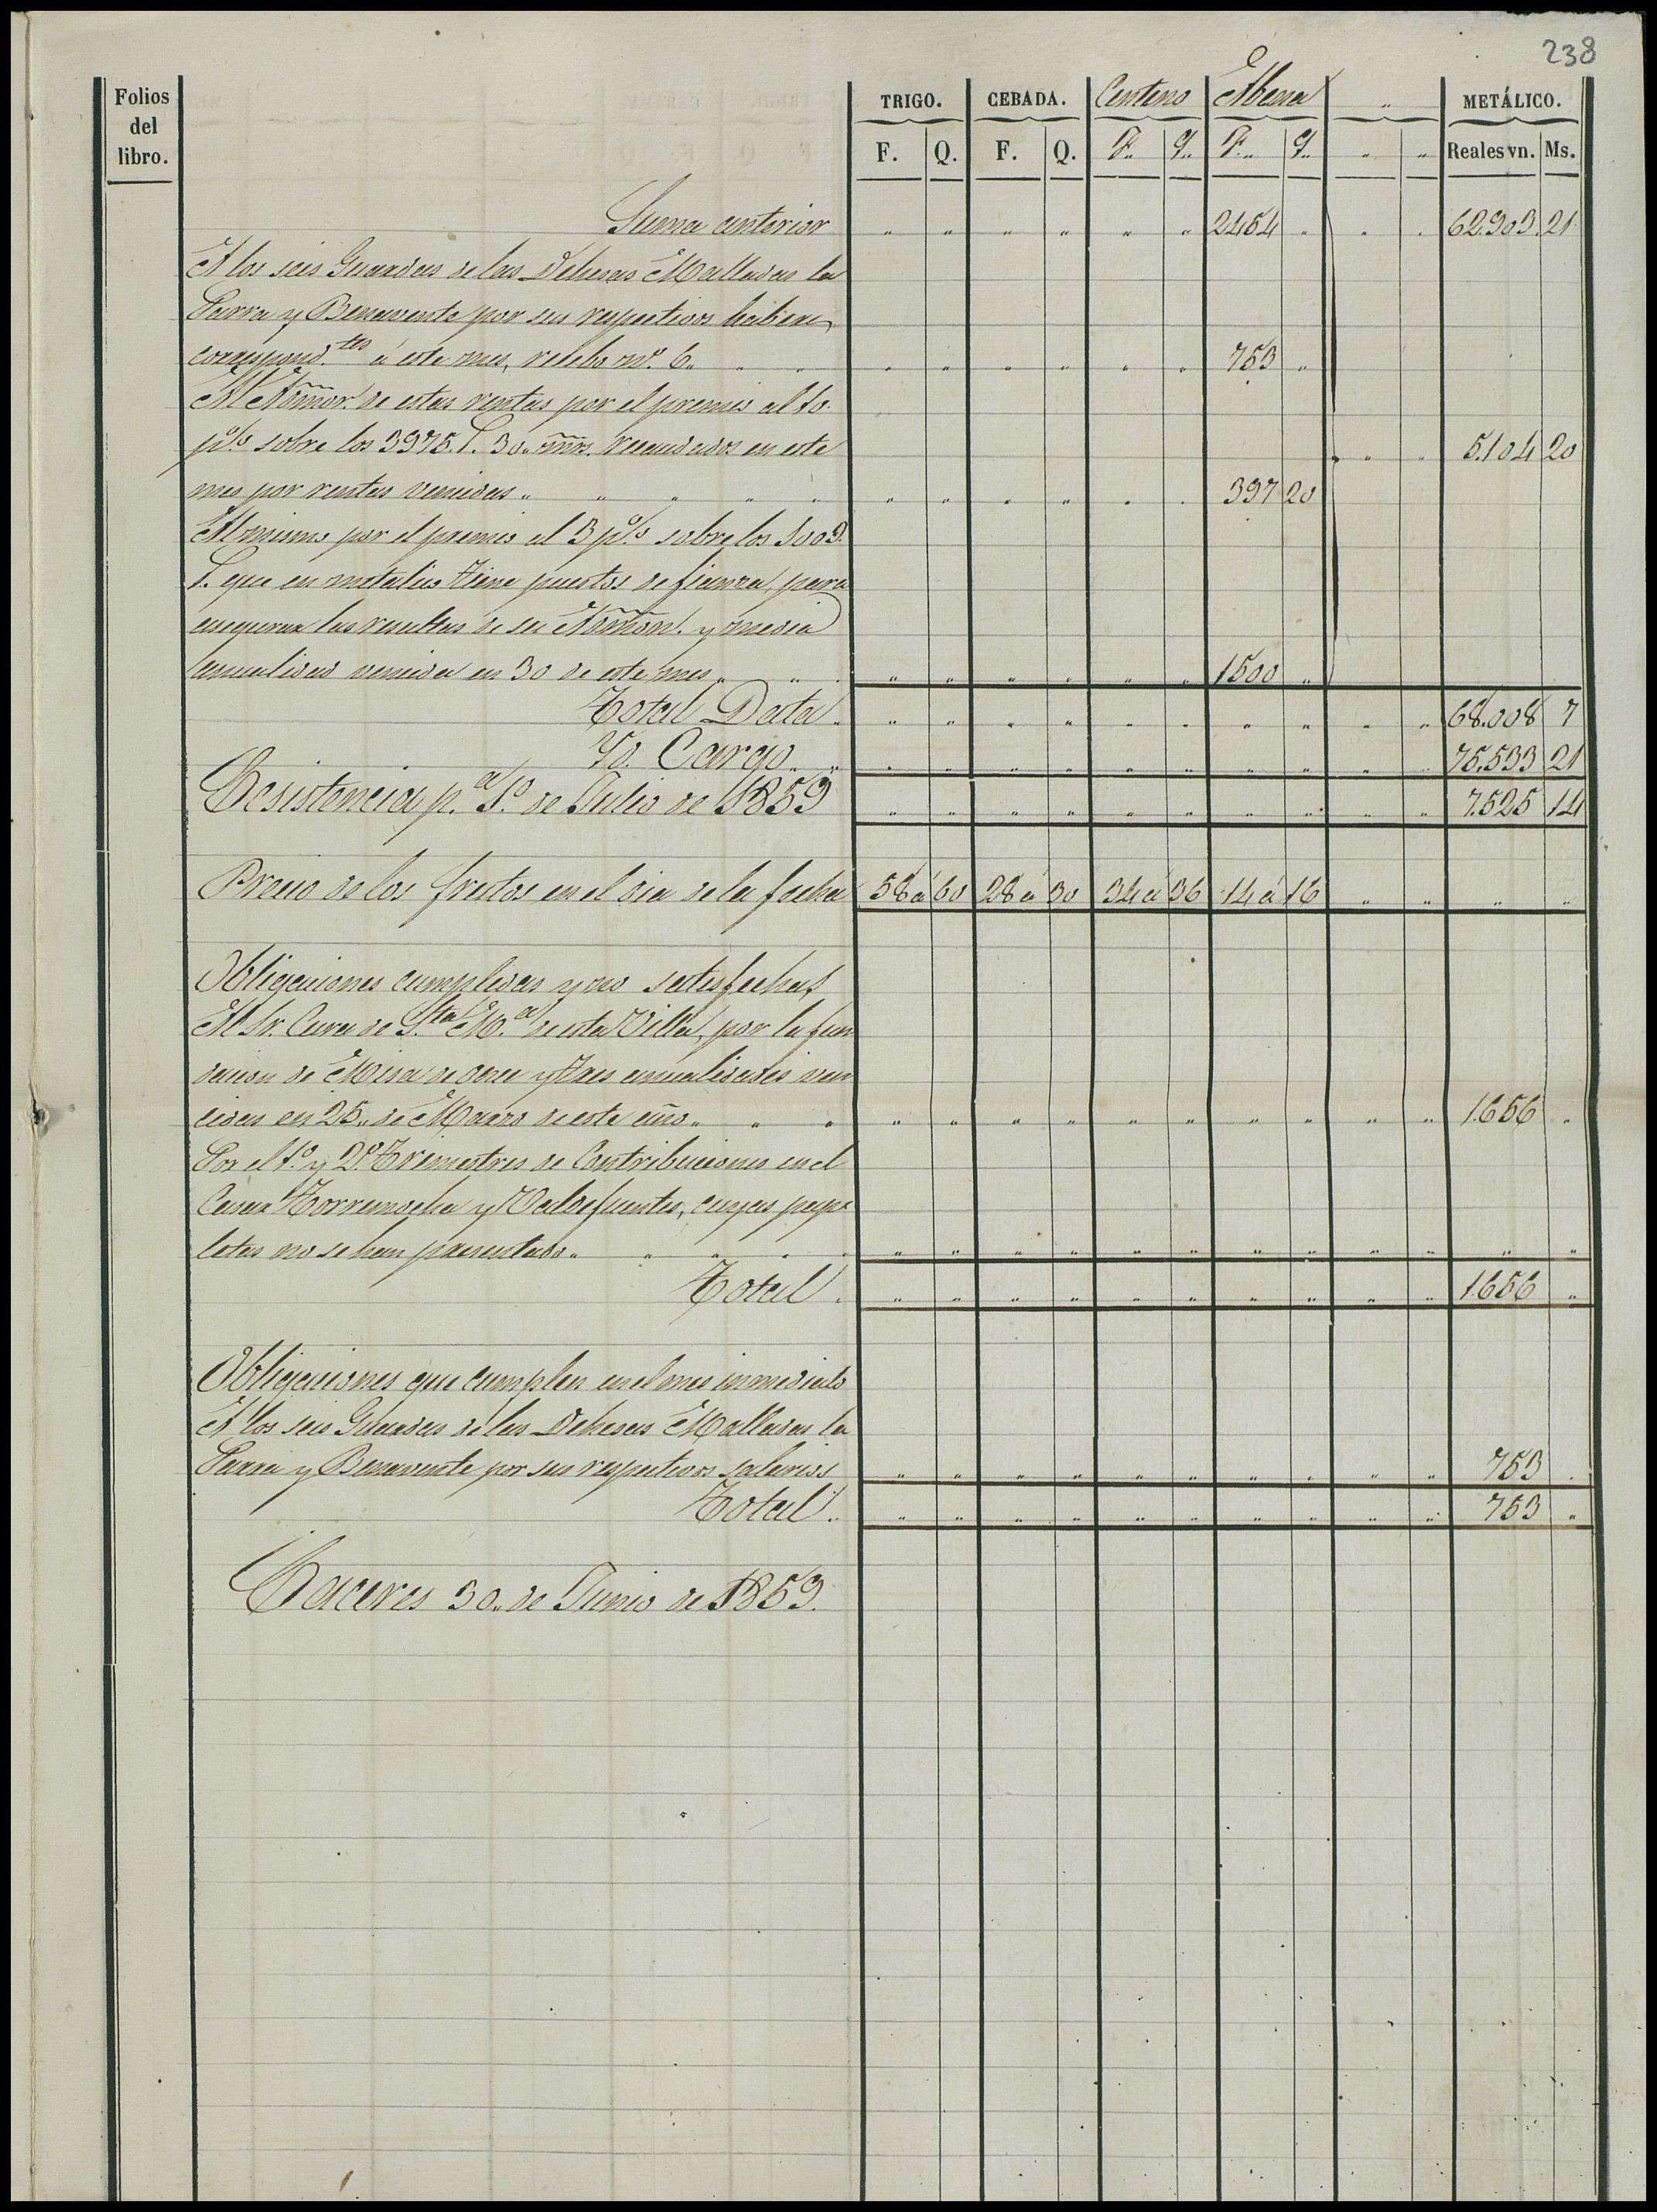 238
Folios del libro.
TRIGO. CEBADA. Centeno Abena " METÁLICO.
F. Q. F. Q. F. Q. F. Q. " " Reales vn. Ms.
Suma anterior " " " " " " 2454 " " " 62.903 21
A los seis Guardas de las Dehesas Malladas la
Parra y Benavente por sus respectivos haberes
correspond.tes á este mes, recibo nº. 6 " " " " " " " " 753 "
Al Admor. de estas rentas por el premio al 10.
pº/o sobre los 3975. r. 30. mrs. recaudados en este " " " 5.104 20
mes por rentas vencidas " " " " " " " " " " " 397 20
Al mismo por el premio al 3 pº/o sobre los 100 d.
r. que en metalico tiene puestos de fianza, para
asegurar las resultas de su Admon. y media
anualidad vencida en 30 de este mes " " " " " " " " " 1500 "
Total Data " " " " " " " " " " 68.008 7
Yd. Cargo " " " " " " " " " " 75.533 21
Ecsistencia p.a 1º de Julio de 1859 " " " " " " " " " " 7.525 14
Precio de los frutos en el dia de la fecha 58 á 60 28 á 30 34 á 36 14 á 16 " " " "
Obligaciones cumplidas y no satisfechas
Al Sr. Cura de S.ta M.a de esta Villa, por la fun
dacion de Misa de once y tres anualidades ven
cidas en 25 " de Marzo de este año " " " " " " " " " " " " " 1.656 "
Por el 1º y 2º Trimestres de Contribuciones en el
Casar Torremocha y Valdefuentes, cuyas pape
letas no se han presentado " " " " " " " " " " " " " " " " "
Total " " " " " " " " " " 1.656 "
Obligaciones que cumplen en el mes inmediato
A los seis Guardas de las Dehesas Malladas la
Parra y Benavente por sus respectivos salarios " " " " " " " " " " 753 "
Total " " " " " " " " " " 753 "
Caceres 30 " de Junio de 1859.